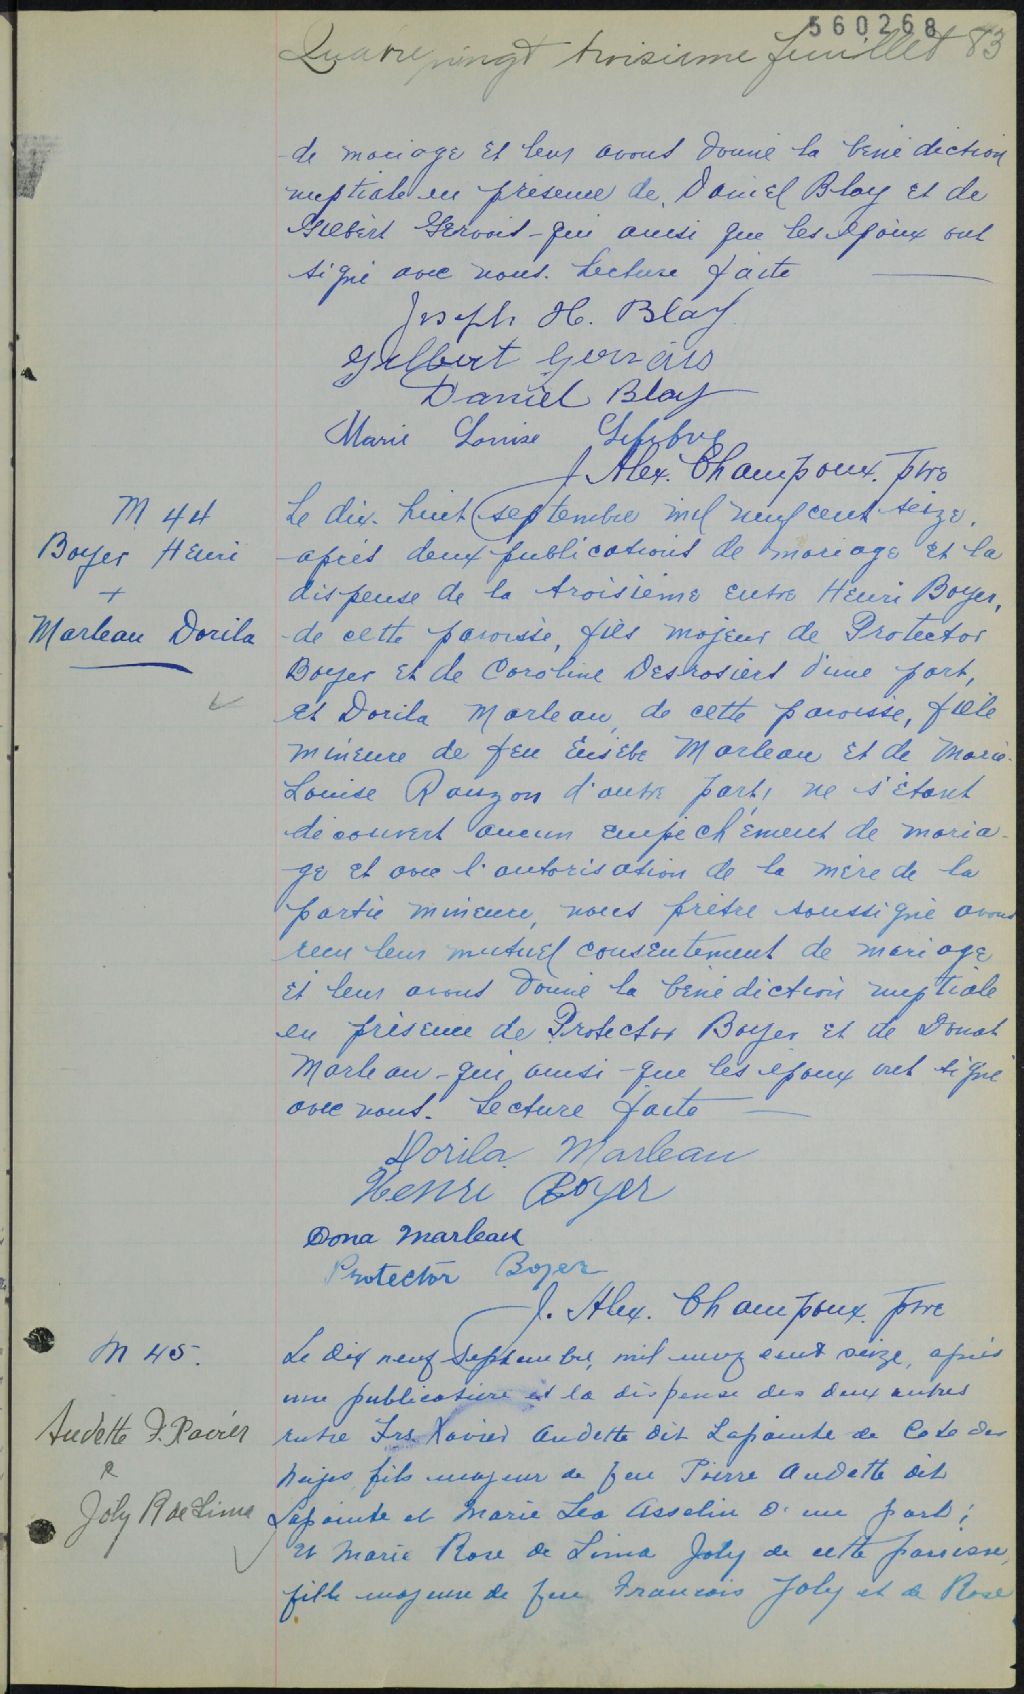 560268
Quatre vingt troisieme feuillet 83
de mariage et leur avons donné la béné diction
nuptiale en présence de Daniel Blay et de
Gilbert Gervais - qui ainsi que les époux ont
signé avec nous. Lecture faite
Joseph H. Blay
Gilbert Gervais
Daniel Blay
Marie Louise Lefebvre
J. Alex. Champoux. ptre
M 44
Boyer Henri
+
Marleau Dorila
Le dix-huit septembre mil neuf cent seize,
après deux publications de mariage et la
dispense de la troisième entre Henri Boyer,
de cette paroisse, fils majeur de Protector
Boyer et de Caroline Desrosiers d'une part,
et Dorila Marleau, de cette paroisse, fille
mineure de feu Eusèbe Marleau et de Marie-
Louise Rauzon d'autre part, ne s'étant
découvert aucun empêchement de maria-
ge et avec l'autorisation de la mère de la
partie mineure, nous prêtre soussigné avons
reçu leur mutuel consentement de mariage
et leur avons donné la béné diction nuptiale
en présence de Protector Boyer et de Donat
Marleau - qui ainsi - que les époux ont signé
avec nous. Lecture faite
Dorila Marleau
Henri Boyer
Dona Marleau
Protector Boyer
J. Alex. Champoux. ptre
M 45.
Audette F. Xavier
&
Joly R de Lima
Le dix neuf Septembre, mil neuf cent seize, après
une publication et la dispense des deux autres
entre Frs Xavier Audette dit Lapointe de Cote des
Neiges, fils majeur de feu Pierre Audette dit
Lapointe et Marie Lea Asselin d'une part;
et Marie Rose de Lima Joly de cette paroisse,
fille majeure de feu Francois Joly et de Rose